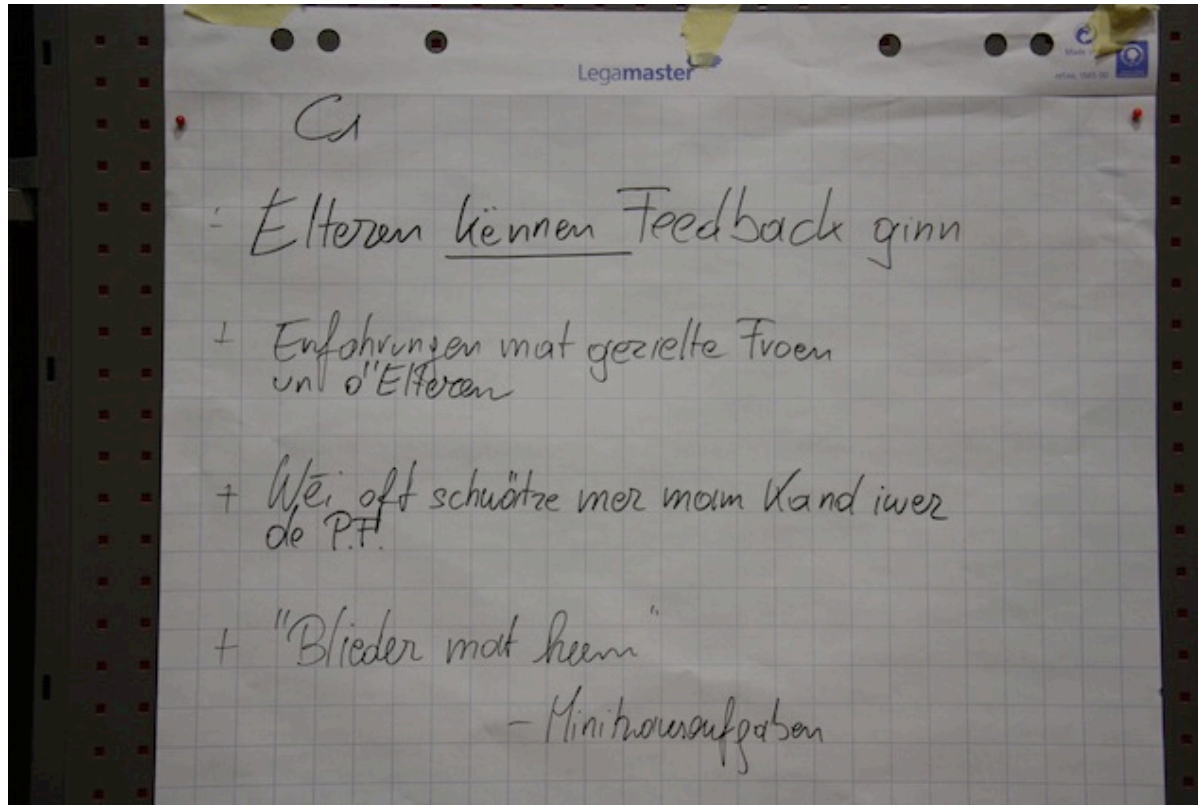 Legamaster
C1
- Elteren kënnen Feedback ginn
+ Erfahrungen mat gezielte Froen
un d'Elteren
+ Wéi oft schwätze mer mam Kand iwer
de P.F.
+ "Blieder mat heem"
- Minihausaufgaben